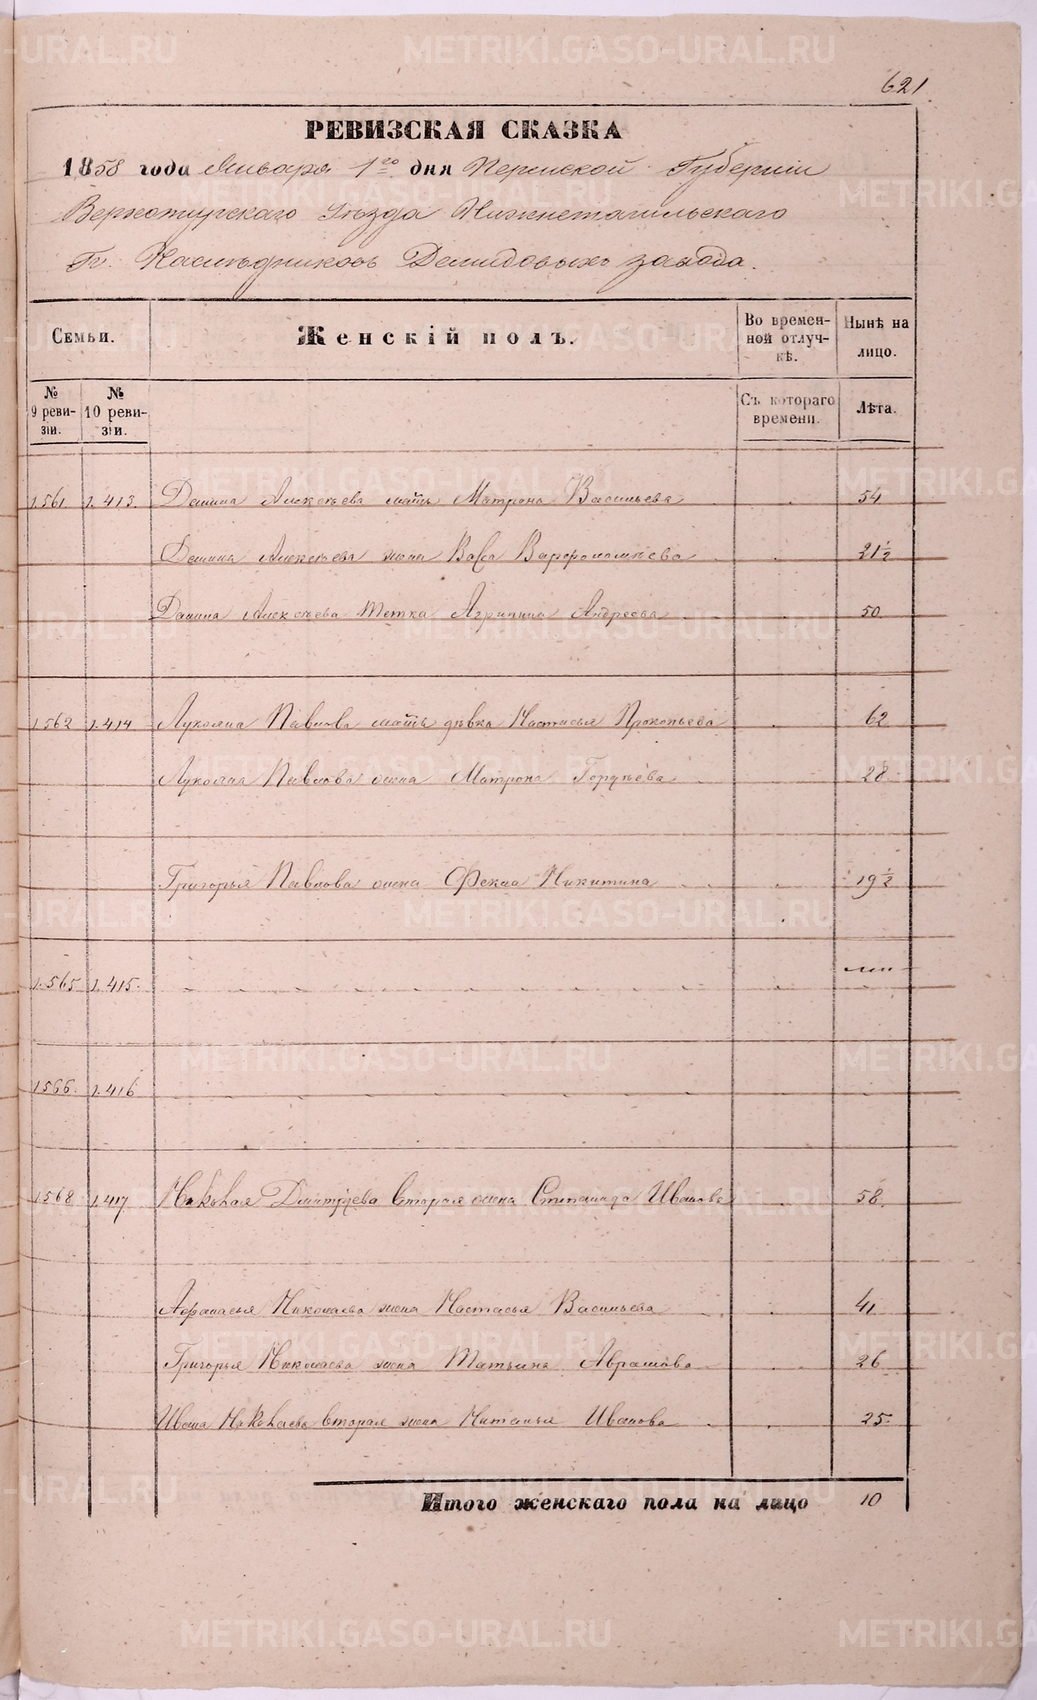 621
РЕВИЗСКАЯ СКАЗКА
1858 года Января 1го дня Пермской Губернии
Верхотурскаго Уѣзда Нижнетагильскаго
Гг. Наслѣдниковъ Демидовыхъ завода.
Семьи. Женскій полъ. Во временной отлучкѣ. Нынѣ на лицо.
№ 9 ревизіи. № 10 ревизіи. Съ котораго времени. Лѣта.
1561. 1.413 Данила Алексѣева мать Матрена Васильева 54
Данила Алексѣева жена Васса Варфоломѣева 21½
Данила Алексѣева тетка Агрипина Андреева 50
1562 1.414 Лукояна Павлова мать дѣвка Настасья Прокопьева 62
Лукояна Павлова жена Матрена Гордѣева 28
Григорья Павлова жена Фекла Никитина 19½
1.565 1.415.
1566. 1.416
1568 1.417 Николая Дмитріева вторая жена Степанида Иванова 58
Афанасья Николаева жена Настасья Васильева 41
Григорья Николаева жена Татьяна Аврамова 26
Ивана Николаева вторая жена Наталья Иванова 25
Итого женскаго пола на лицо 10
METRIKI.GASO-URAL.RU